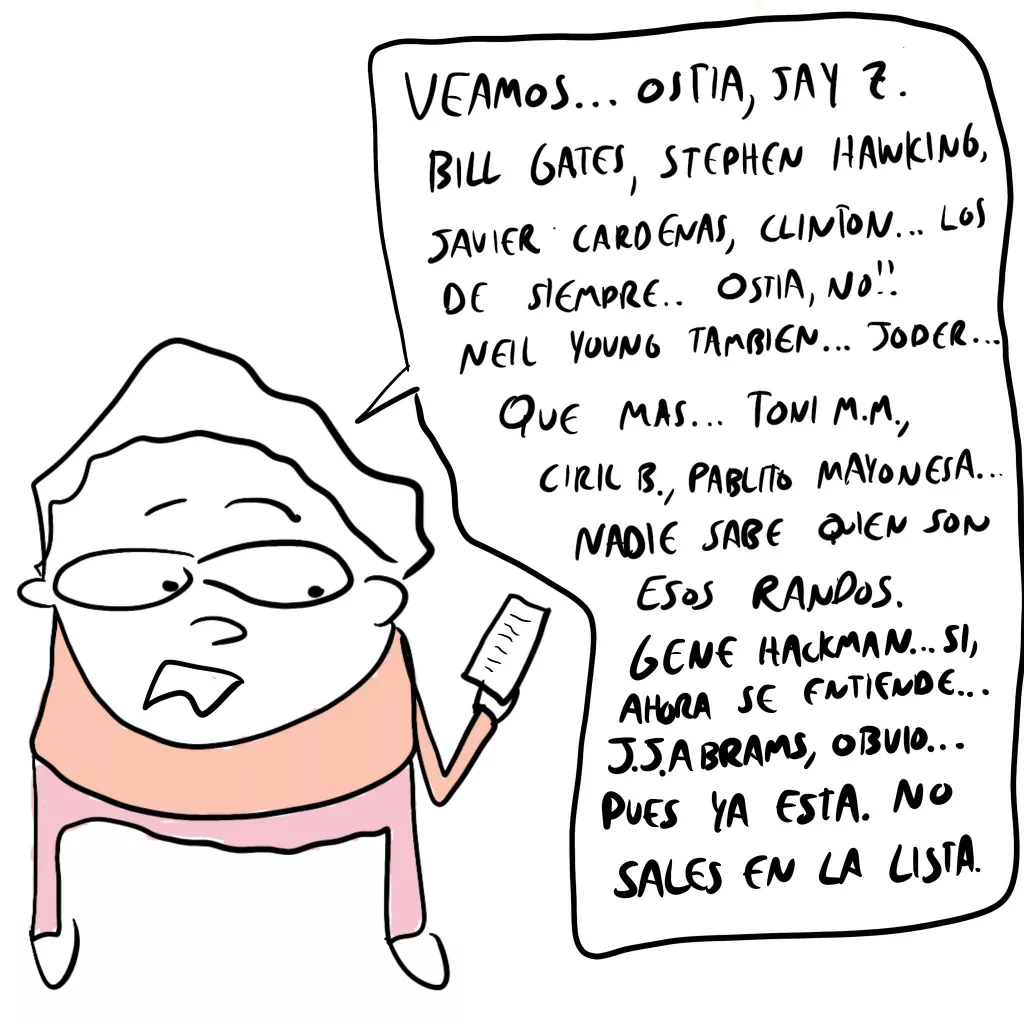 VEAMOS... OSTIA, JAY Z.
BILL GATES, STEPHEN HAWKING,
JAVIER CARDENAS, CLINTON... LOS
DE SIEMPRE.. OSTIA, NO!!
NEIL YOUNG TAMBIEN... JODER...
QUE MAS... TONI M.M.,
CIRIL B., PABLITO MAYONESA...
NADIE SABE QUIEN SON
ESOS RANDOS.
GENE HACKMAN... SI,
AHORA SE ENTIENDE...
J.J.ABRAMS, OBVIO...
PUES YA ESTA. NO
SALES EN LA LISTA.